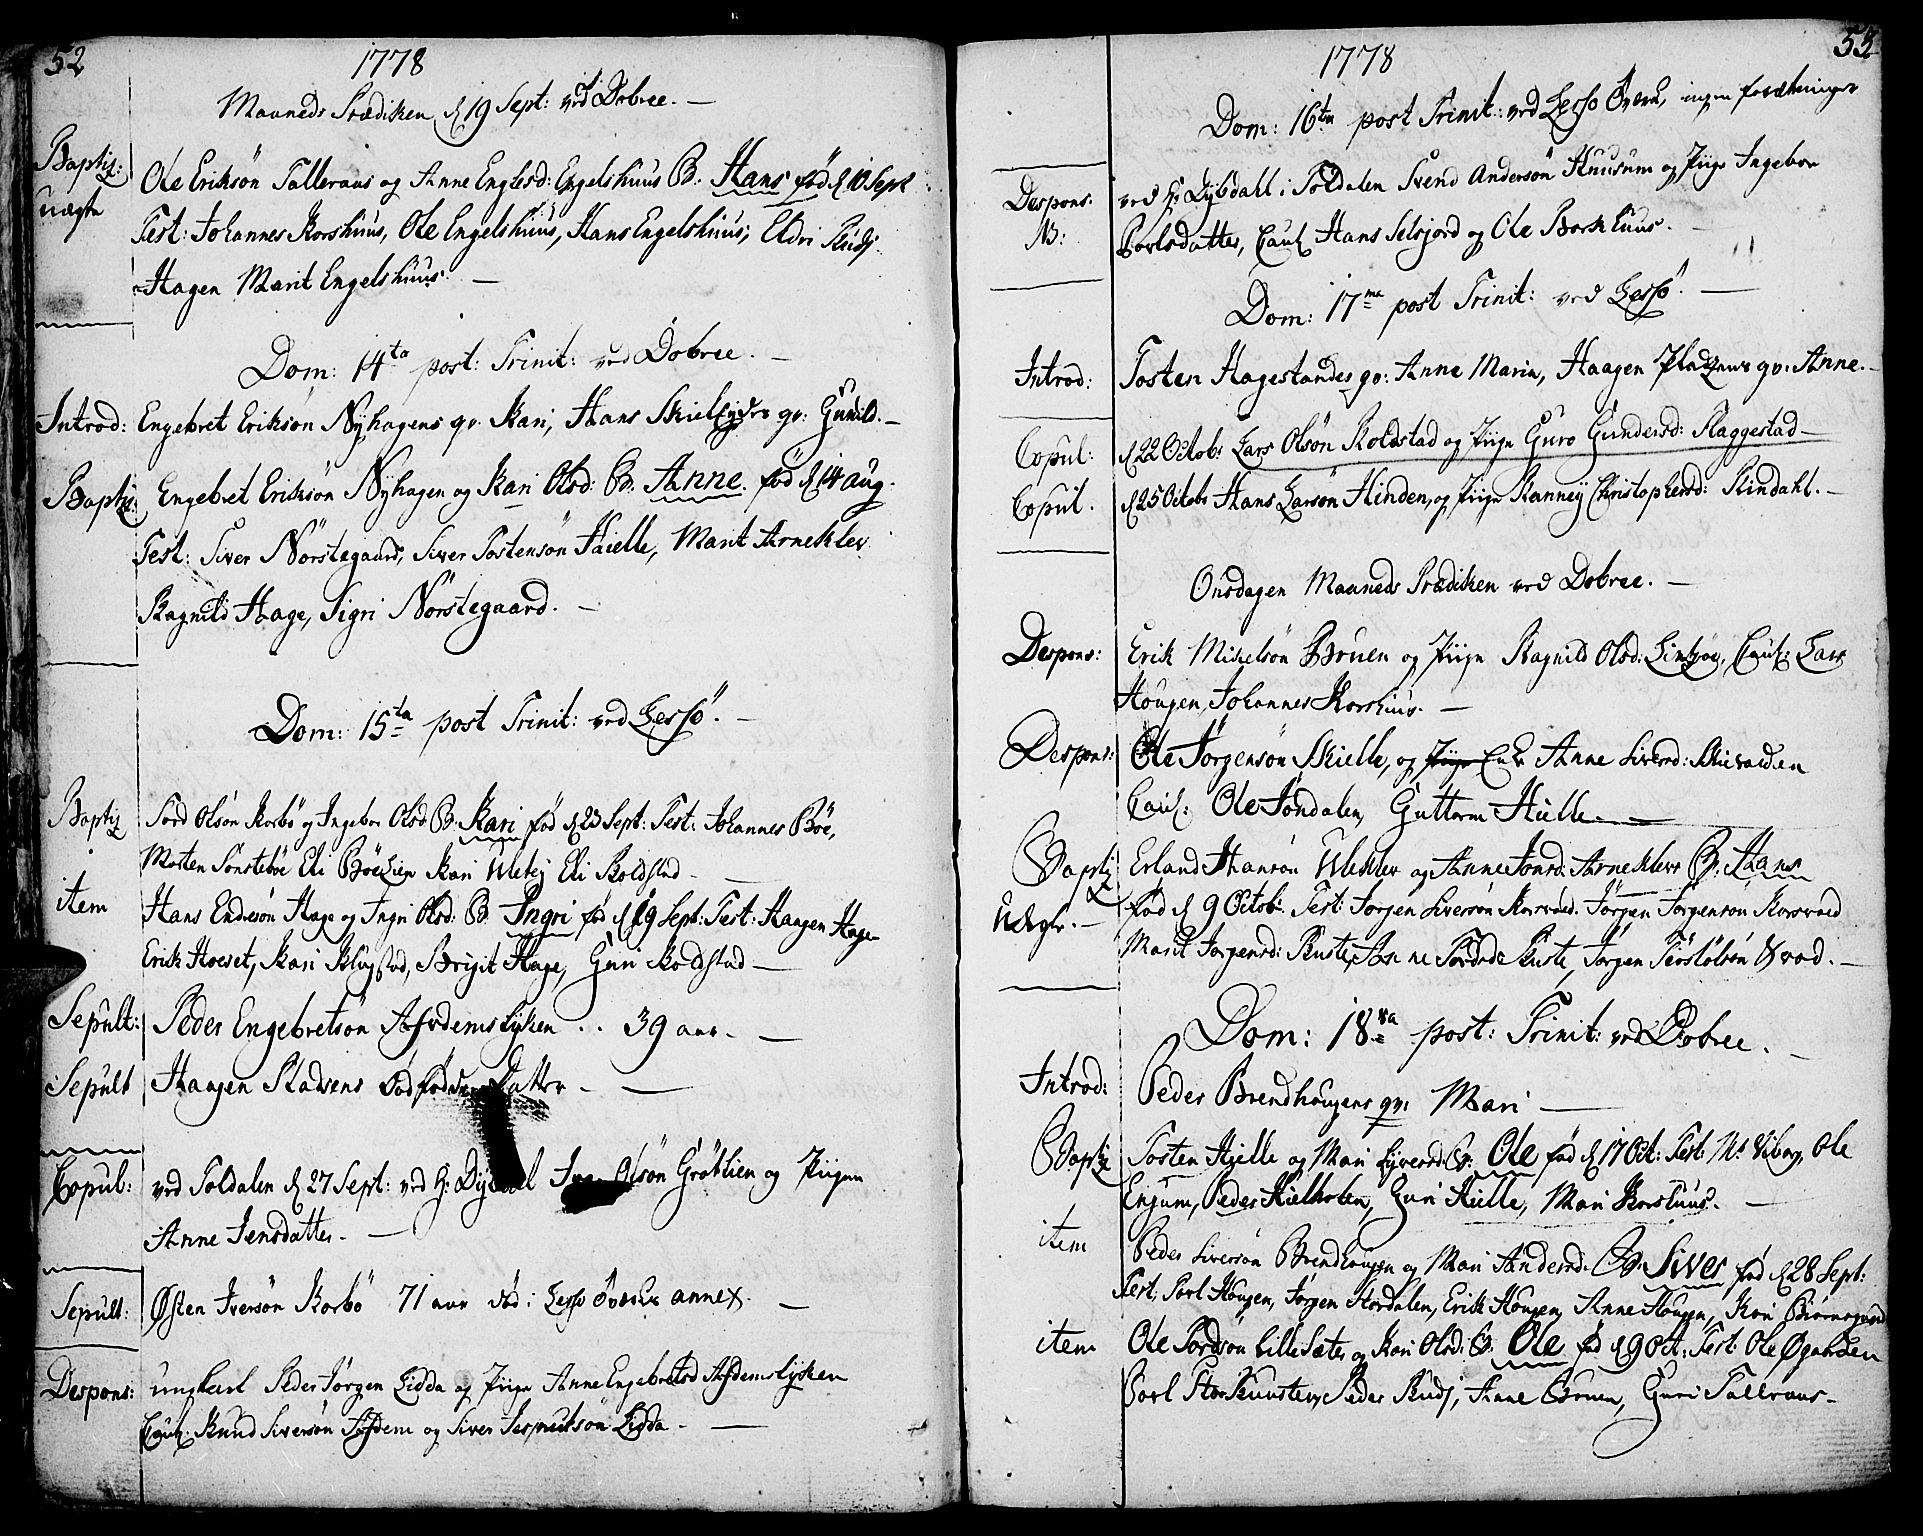 52
1778
Maaneds Prædiken d 19 Sept: ved Dobree. —
Baptiz: Ole Eriksön Talleraas og Anne Englesd: Engelshuus B: Hans föd d 10 Sept
uægte Test: Johannes Korshuus, Ole Engelshuus, Hans Engelshuus, Eldri
Hagen Marit Engelshuus. —
Dom: 14ta post: Trinit: ved Dobree. —
Introd: Engebret Eriksön Nyhagens qv. Kari, Hans qv: Gunild. —
Baptiz: Engebret Eriksön Nyhagen og Kari Olsd: B. Anne. föd d 14 aug.
Test: Siver Norstegaard, Siver Tostensön Hielle, Marit Arneklev
Ragnild Hage, Sigri Norstegaard. —
Dom: 15ta post Trinit: ved Lessö. —
Baptiz Tord Olsön Korbö og Ingebor Olsd B: Kari föd d 23 Sept: Test: Johannes Böe,
Morten Sönsteböe Eli Kari Eli Koldstad —
item Hans Endresön Hage og Ingri Olsd: B: Ingri föd d 19 Sept: Test: Haagen Hage
Erik Hoeset, Kari Brigit Hage, Guri Koldstad —
Sepult: Peder Engebretsön Afdemslyken . . 39 aar. —
Sepult Haagen Stadsens dödfödde Datter — —
Copul: ved Toldalen d 27 Sept: ved H: Olsön Gröttien og Piigen
Anne Jensdatter. —
Sepult: Østen Iversön Korbö 71 aar död i Lessö Øverk annex. —
Despons: ungkarl Peder Jörgen Lidda og Piige Anne Engebretsd Afdemslyken
Cauti. Knud Siversön Afdem og Siver Lidda. —
53
1778
Dom: 16ta post Trinit: ved Lessö Øverk, ingen forretninger
Despons: ved H: Dybdahl i Toldalen Svend Andersön Huusum og Piige Ingebor
NB: Porlsdatter, Caut Hans Selsjord og Ole Borkhuus. —
Dom: 17ma post Trinit: ved Lessö. —
Introd: Tosten Hagestandes qv: Anne Maria, Haagen Pladzens qv: Anne. —
Copul: d 22 Octobr Lars Olsön Koldstad og Piige Guro Gundersd: Flaggestad —
Copul. d 25 Octobr Hans Larsön Hinden, og Piige Ranney Christophersd: Rindahl. —
Onsdagen Maaneds Prædiken ved Dobree. —
Despons: Erik Mikelsön Bruen og Piige Ragnild Olsd: Caut: Lars
Hougen, Johannes Korshuus. —
Despons: Ole Jörgensön Skielle, og Piige Enk Anne Siversd:
Caut: Ole Jöndalen, Guttorm Hielle. —
Baptiz Erland Hansön Uleklev og Anne Jonsd: Arneklev B: Hans
Uægte. — föd d 9 Octob: Test: Jörgen Siversön Korsvold. Jörgen Jörgensön Korsvold
Marit Jörgensd: Kuste, Anne Tordsd: Kuste, Jörgen —
Dom: 18va post: Trinit: ved Dobree. —
Introd: Peder Brendhougens qv: Mari —
Baptiz Tosten Hielle og Mari Syversd: B: Ole föd d 17 Oct: Test: Mr Viborg, Ole
Enjum, Peder Kielholen, Guri Hielle, Mari Korshuus. —
item Peder Siversön Brendhougen og Mari Andersd: B: Siver föd d 28 Sept:
Test: Porl Hougen, Jörgen Hordalen, Erik Hougen, Anne Hougen, Kari
item Ole Tordsön Lille Sæter og Kari Olsd: B: Ole föd d 9 Oct: Test: Ole
Porl Peder Anne Bruen, Guri Talleraas. —